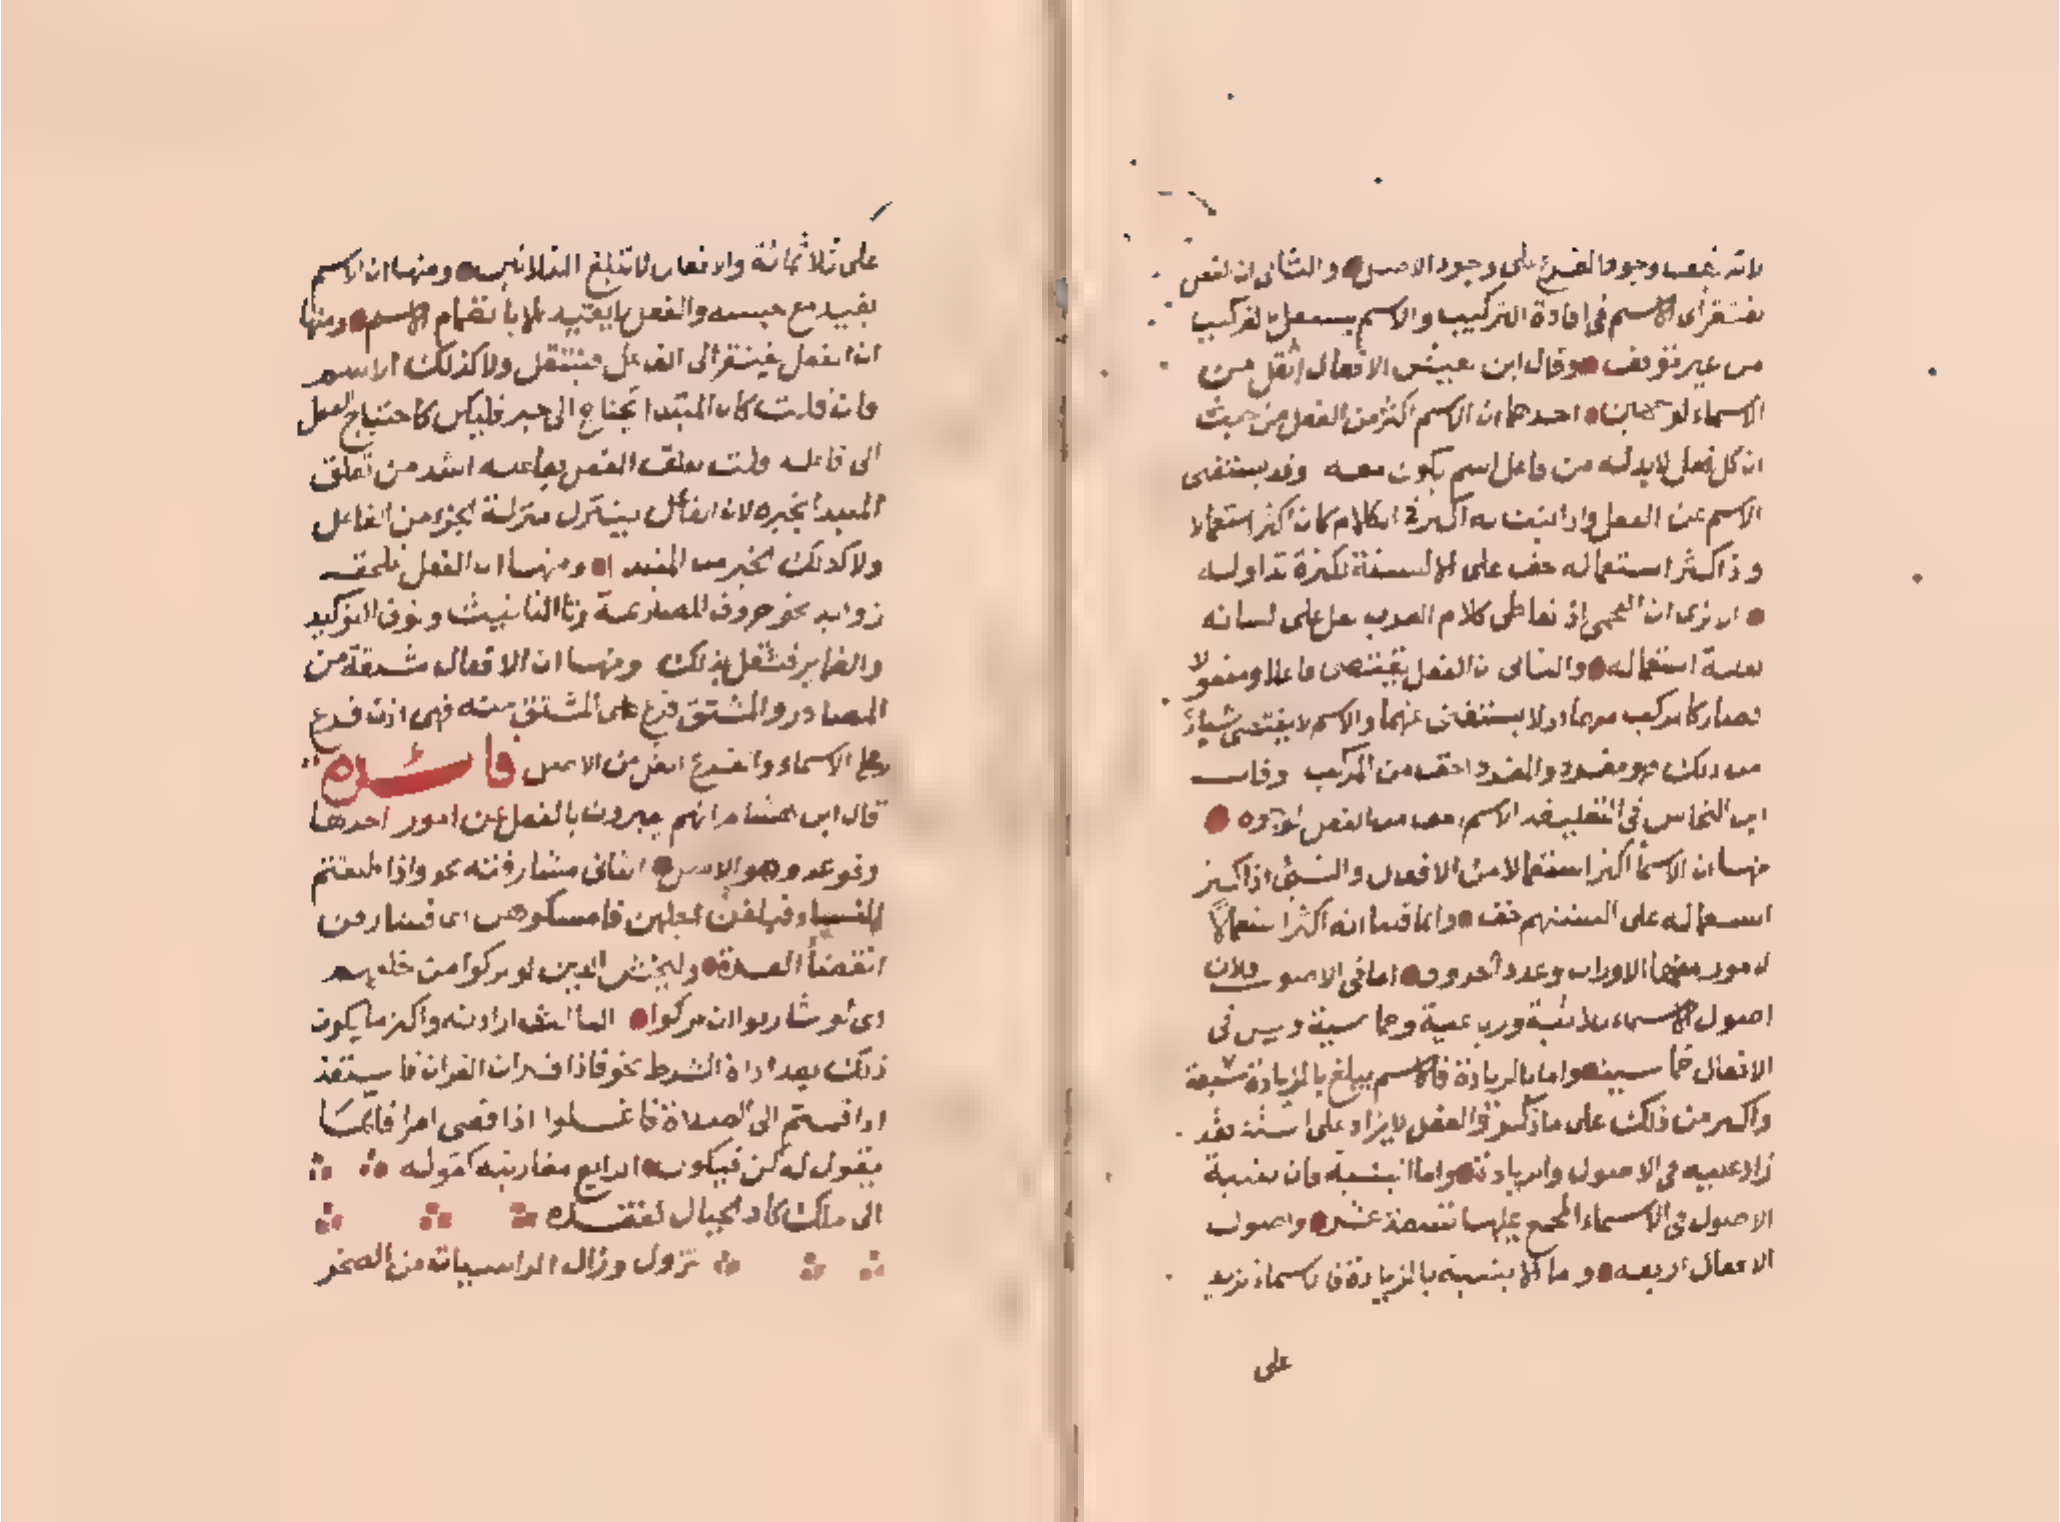 لانه يجب وجود الفرع على وجود الاصل والثاني ان الفعل
يفتقر الى الاسم في افادة التركيب والاسم يستعمل بالتركيب
من غير توقف وقال ابن يعيش الافعال اثقل من
الاسماء لوجهين احدهما ان الاسم اكثر من الفعل من حيث
ان كل فعل لابد له من فاعل اسم يكون معه وقد يستغنى
الاسم عن الفعل واذا ثبت انه اكثر في الكلام كان اكثر استعمالا
وذا كثر استعماله خف على الالسنة لكثرة تداوله
الا ترى ان العجمي اذ تعاطى كلام العرب ثقل على لسانه
لقلة استعماله والثاني ن الفعل يقتضى فاعلا ومفعولا
فصار كالمركب منهما ولا يستغنى عنهما والاسم لا يقتضى شياء
من ذلك فهو مفرد والمفرد اخف من المركب وقال
ابن النحاس في التعليقة الاسم اخف من الفعل لوجوه
منها ان الاسما اكثر استعمالا من الافعال والشئ اذا كثر
استعماله على السنتهم خف وانما قلنا انه اكثر استعمالا
لامور منها الاوزان وعدد الحروف اما في الاصول فلان
اصول الاسماء ثلاثية ورباعية وخماسية وليس في
الافعال خماسية واما بالزيادة فالاسم يبلغ بالزيادة سبعة
واكثر من ذلك على ما ذكر والفعل لا يزاد على الستة فقد
زاد عليه في الاصول والزيادة واما ابنية فان ابنية
الاصول في الاسماء المجمع عليها تسعة عشر واصول
الافعال اربعه وما الابنية بالزيادة فالاسماء تزيد
على
على ثلاثمائة والافعال لا تبلغ الثلاثين ومنها ان الاسم
يفيد مع جنسه والفعل لا يفيد الا بانضمام الاسم ومنها
ان الفعل يفتقر الى الفاعل فيثقل ولا كذلك الاسم
فان قلت كان المبتدا يحتاج الى خبر فليكن كاحتياج الفعل
الى فاعله قلت تعلق الفعل بفاعله اشد من تعلق
المبتدا بخبره لان الفاعل يتنزل منزلة الجزء من الفاعل
ولا كذلك الخبر من المبتدا ومنها ان الفعل تلحقه
زوايد نحو حروف المضارعة وتا التانيث ونون التوكيد
والضماير فتثقل بذلك ومنها ان الافعال مشتقة من
المصادر والمشتق فرع على المشتق منه فهي اذن فرع
على الاسماء والفرع اثقل من الاصل فائده
قال ابن هشام انهم يعبرون بالفعل عن امور احدها
وقوعه وهو الاصل الثاني مشارفته نحو واذا طلقتم
النساء فبلغن اجلهن فامسكوهن اى فشارفن
انقضاء العدة وليخش الذين لو تركوا من خلفهم
اى لو شارفوا ان يتركوا الثالث ارادته واكثر ما يكون
ذلك بعد اداة الشرط نحو فاذا قرات القران فاستعذ
اذا قمتم الى الصلاة فاغسلوا اذا قضى امرا فانما
يقول له كن فيكون الرابع مقاربته كقوله
الى ملك كاد الجبال لفقده
تزول وزال الراسيات من الصخر